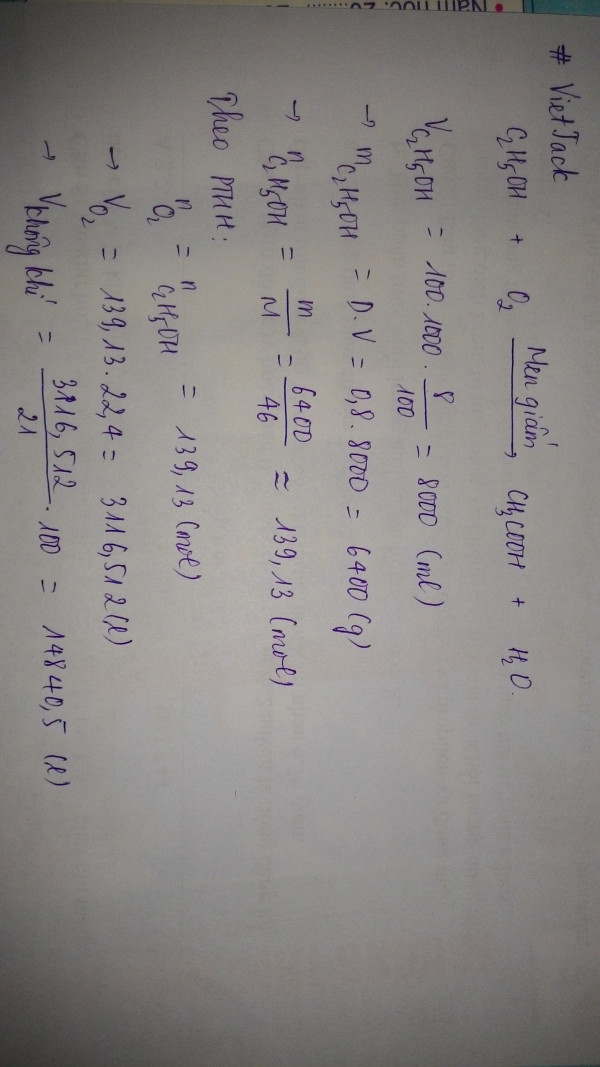 # VietJack
C₂H₅OH + O₂ —Men giấm→ CH₃COOH + H₂O.
V C₂H₅OH = 100.1000 . 8/100 = 8000 (ml)
→ m C₂H₅OH = D.V = 0,8.8000 = 6400(g)
→ n C₂H₅OH = m/M = 6400/46 ≈ 139,13 (mol)
Theo PTHH:
n O₂ = n C₂H₅OH = 139,13 (mol)
→ V O₂ = 139,13.22,4 = 3116,512(l)
→ V không khí = 3116,512/21 . 100 = 14840,5 (l)